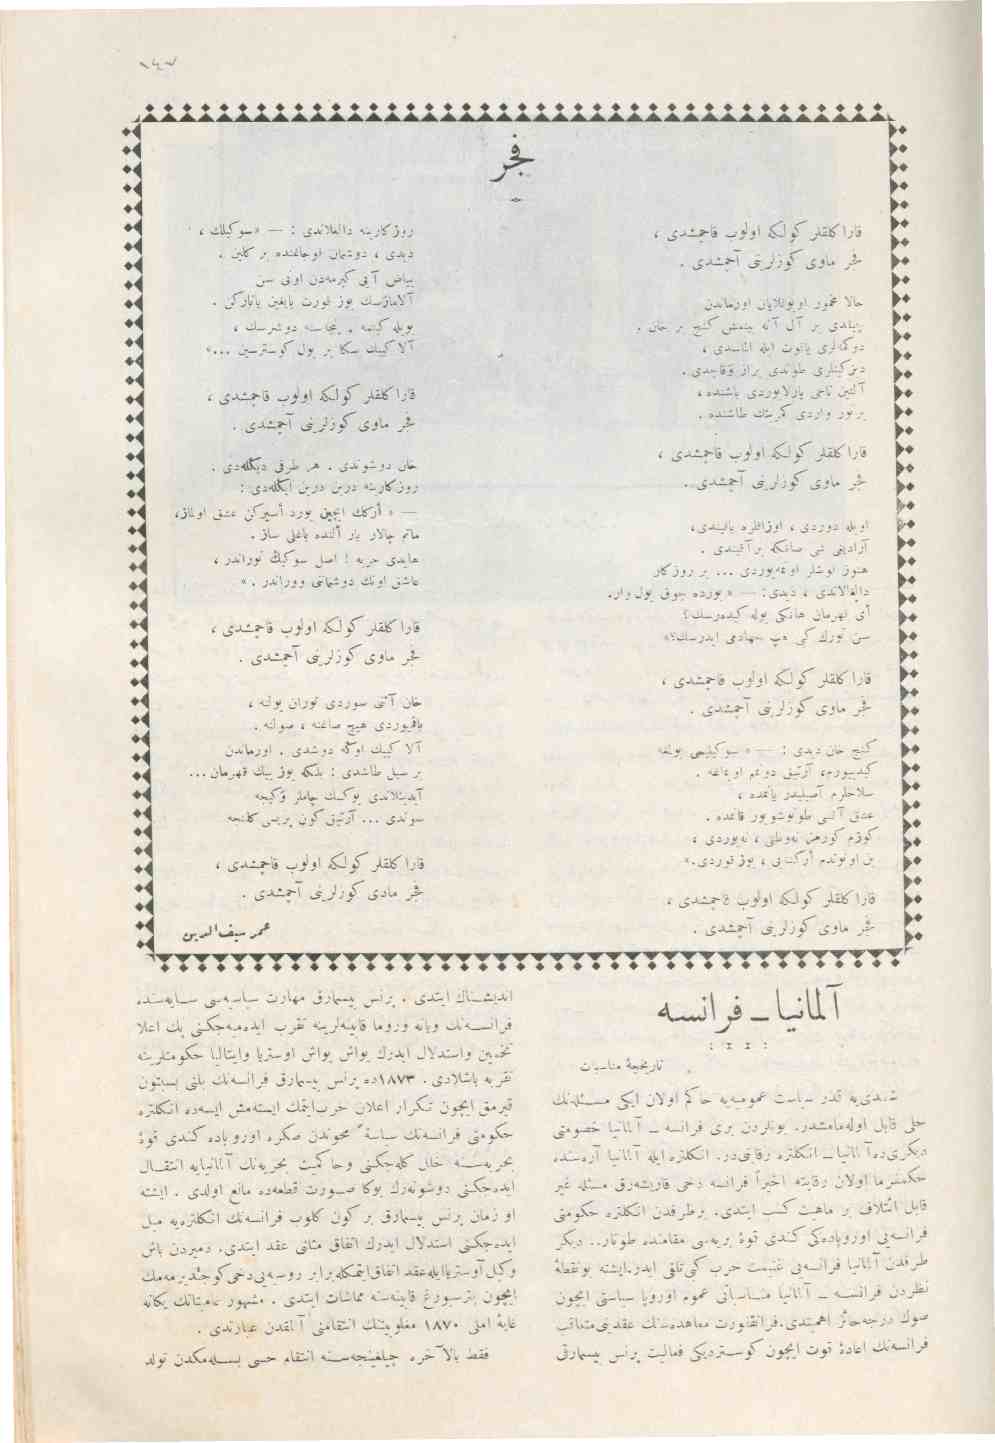 ١٤٧
فجر
قارا كلقلر كولكه اولوب قاچمشدى ،
فجر ماوى كوزلرينى آچمشدى .
حالا مخمور اويوقلايان اورماندن
چيقدى بر آل آته بينمش كنج بر خان .
دوكمه‌لرى ياقوت ايله الماسدى ،
ديزكينلرى طوتدى براز
آلتين تاجى پارلايوردى باشنده ،
بر نور واردى طاشنده .
قارا كلقلر كولكه اولوب قاچمشدى ،
فجر ماوى كوزلرينى آچمشدى .
اويله دوردى ، اوزاقلره باقيندى ،
آراديغى شى صانكه بر آقيندى .
هنوز قوشلر اويويوردى ... بر روزكار
دالغالاندى ، ديدى : — « بورده چوق يول وار.
آى قهرمان هانكى يوله كيده‌رسك؟
سن تورك كى هپ جهادمى ايدرسك؟»
قارا كلقلر كولكه اولوب قاچمشدى ،
فجر ماوى كوزلرينى آچمشدى .
كنج خان ديدى : — « سوكيليمى بولمغه
كيدييورم، آرتيق دوغم اوباغه .
سلاحلرم آصيليدر يانمده ،
عشق آتشى طوتوشويور قانمده .
كوزم كورمز نه وطنى ، نه يوردى ،
بن اونوتدم اركنه‌يى ، بوز قوردى.»
قارا كلقلر كولكه اولوب قاچمشدى ،
فجر ماوى كوزلرينى آچمشدى .
روزكارينه دالغالاندى : — «سوكيلك ،
ديدى ، دوشمان اوجاغنده بر كلين .
بياض آتى كيرمه‌دن اونى سن
آلامازسك يوز غورت يايغين ياتاركن .
بويله كيتمه ، پنجه‌سنه دوشرسك ،
آلا كييك سكا بر يول كوسترسين ...»
قارا كلقلر كولكه اولوب قاچمشدى ،
فجر ماوى كوزلرينى آچمشدى .
خان دوشوندى . هر طرفى ديكله‌دى .
روزكارينه درين درين ايكله‌دى :
— « أركك ايچين يورد أسيركن عشق اولماز،
ماتم چالار يار آلنده باغلى ساز .
هايدى حربه ! اصل سوكيڭ توراندر ،
عاشق اونك دوشمانى ووراندر . »
قارا كلقلر كولكه اولوب قاچمشدى ،
فجر ماوى كوزلرينى آچمشدى .
خان آتنى سوردى توران يولنه ،
باقميوردى هيچ صاغنه ، صولنه .
آلا كييك اوكنه دوشدى . اورماندن
بر سيل طاشدى : بلكه يوز بيك قهرمان ...
آيدينلاندى يوكسك چاملر وكيجه
سوندى ... آرتيق كون پريسى كلنجه
قارا كلقلر كولكه اولوب قاچمشدى ،
فجر مادى كوزلرينى آچمشدى .
عمر سيف الدين
آلمانيا – فرانسه
تاريخچهٔ مناسبات
شيمدىيه قدر سياست عموميه‌يه حاكم اولان ايكى مسئله‌نك
حلى قابل اوله‌مامشدر. بونلردن برى فرانسه – آلمانيا خصومتى
ديكرى‌ده آلمانيا – انكلتره رقابتى‌در. انكلتره ايله آلمانيا آره‌سنده
حكمفرما اولان رقابته اخيراً فرانسه دخى قاريشه‌رق مسئله غير
قابل ائتلاف بر ماهيت كسب ايتدى. بر طرفدن انكلتره حكومتى
فرانسه‌يى اوروپاده‌كى كندى قوهٔ بريه‌سى مقامنده طوتار.. ديكر
طرفدن آلمانيا فرانسه‌يى غنيمت حرب كى تلقى ايدر. ايشته بو نقطهٔ
نظردن فرانسه – آلمانيا مناسباتى عموم اوروپا سياستى ايچون
صوك درجه حائز اهميتدى. فرانقفورت معاهده‌سنك عقدينى متعاقب
فرانسه‌نك اعادهٔ قوت ايچون كوستردیكى فعاليت پرنس بيسمارقى
انديشه‌ناك ايتدى . پرنس بيسمارق مهارت سياسيه‌سى سايه‌سنده
فرانسه‌نك ويانه وروما قابينه‌لرينه تقرب ايده‌ميه‌جكنى پك اعلا
تخمين واستدلال ايدرك يواش يواش اوستريا وايتاليا حكومتلرينه
تقربه باشلادى . ١٨٧٣ده پرنس بيسمارق فرانسه‌نك بلنى بسبتون
قيرمق ايچون تكرار اعلان حرب ايتمك ايسته‌مش ايسه‌ده انكلتره
حكومتى فرانسه‌نك سياسةً محوندن صكره اوروپاده كندى قوهٔ
بحريه‌سنه خلل كله‌جكنى وحاكميت بحريه‌نك آلمانيايه انتقال
ايده‌جكنى دوشونه‌رك بوكا صورت قطعه‌ده مانع اولدى . ايشته
او زمان پرنس بيسمارق بر كون كلوب فرانسه‌نك انكلتره‌يه ميل
ايده‌جكنى استدلال ايدرك اتفاق مثانى عقد ايتدى. دميردن باش
وكيل آوستريا ايله عقد اتفاق ايتمكله برابر روسيه‌يى دخى كوجنديرمه‌مك
ايچون پترسبورغ قابينه‌سنه مماشات ايتدى . مشهور عامتانك يكانه
غايهٔ املى ١٨٧٠ مغلوبيتنك انتقامنى آلمقدن عبارتدى .
فقط بالآخره چيلغينجه‌سنه انتقام حسى بسله‌مكدن تولد